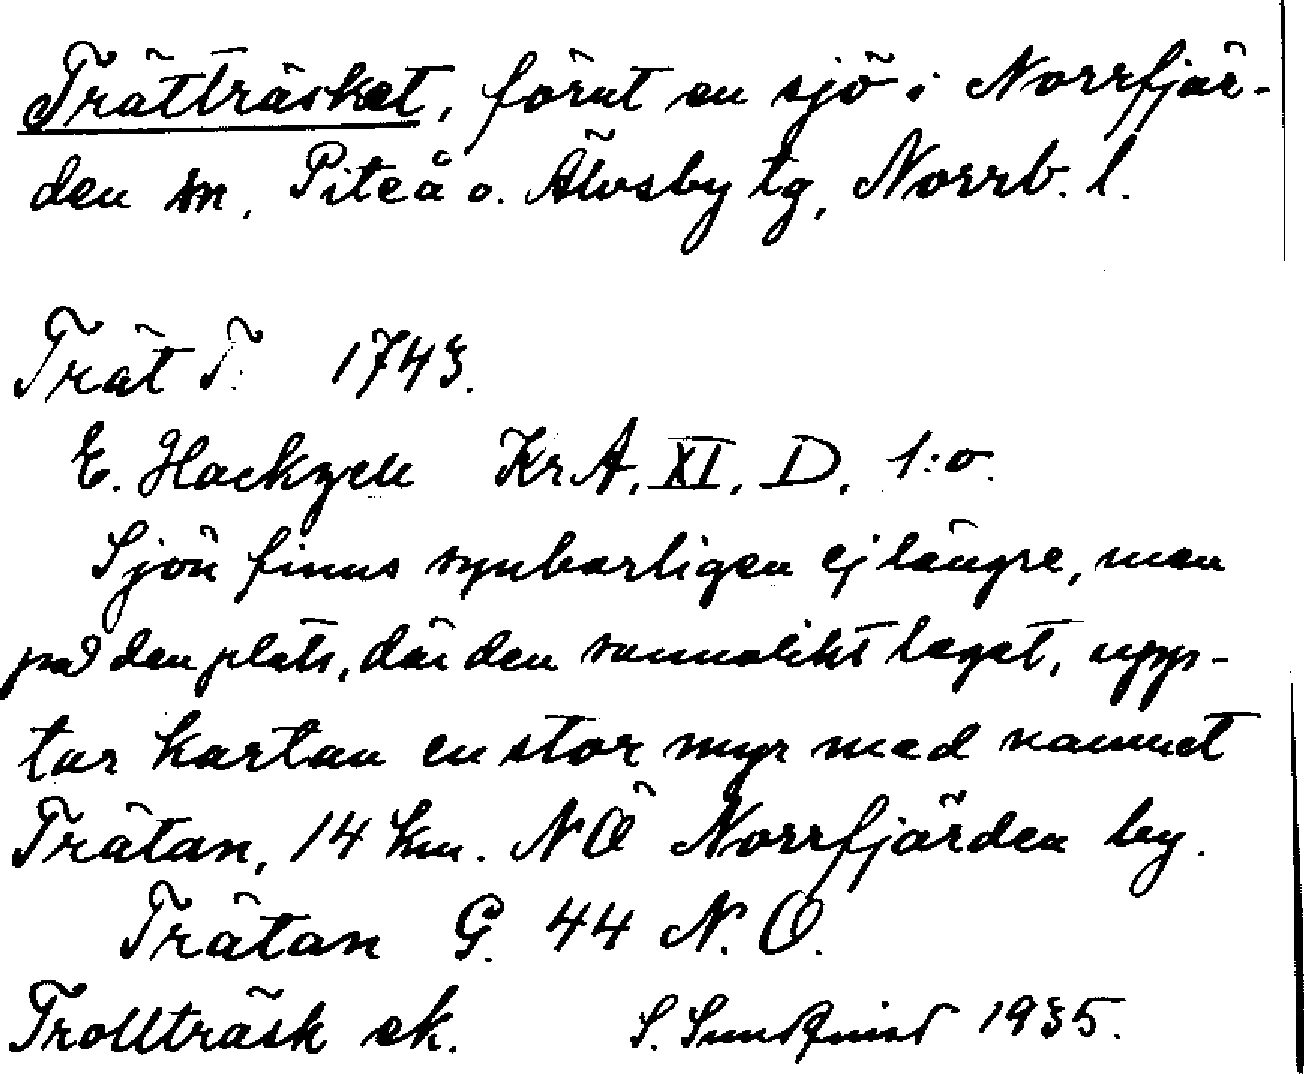 Trätträsket, förut en sjö i Norrfjär-
den sn, Piteå o. Älvsby tg, Norrb. l.
Trät T. 1743.
E. Hackzell KrA, XI, D, 1:o.
Sjön finns synbarligen ej längre, men
på den plats, där den sannolikt legat, upp-
tar kartan en stor myr med namnet
Trätan, 14 km. NÖ Norrfjärden by.
Trätan G. 44 N.O.
Trollträsk ek. S. Sundqvist 1935.